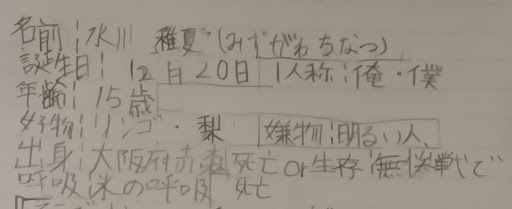 名前:水川 稚夏(みずがわちなつ)
誕生日: 12月20日 1人称:俺・僕
年齢:15歳
好物:リンゴ・梨 嫌物:明るい人、
出身:大阪府 死亡or生存:無 戦で
呼吸:氷の呼吸 死亡